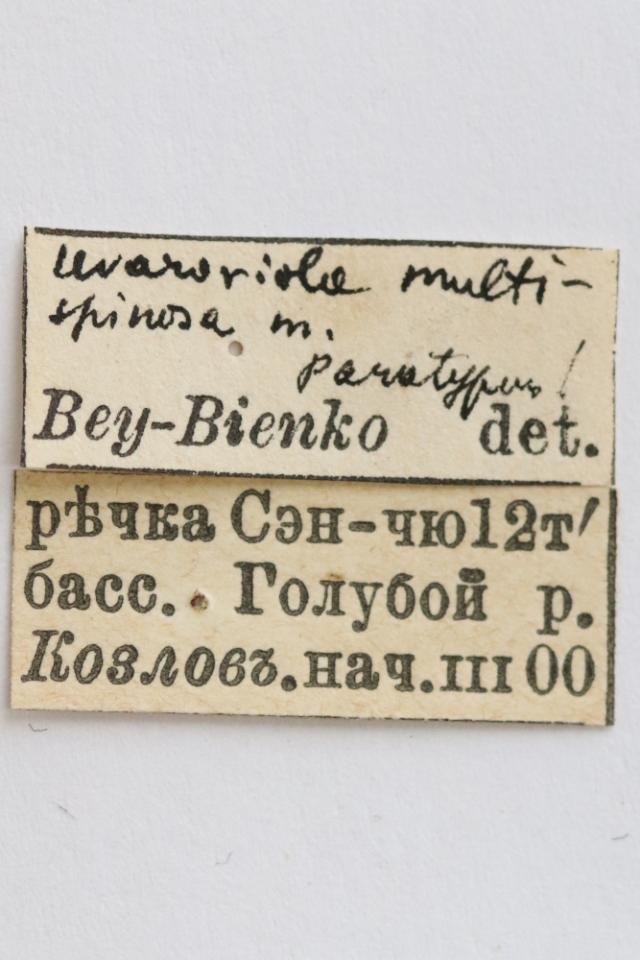 Uvaroviola multi-
spinosa m.
paratypus!
Bey-Bienko det.
рѣчка Сэн-чю 12т'
басс. Голубой р.
Козловъ. нач. III 00